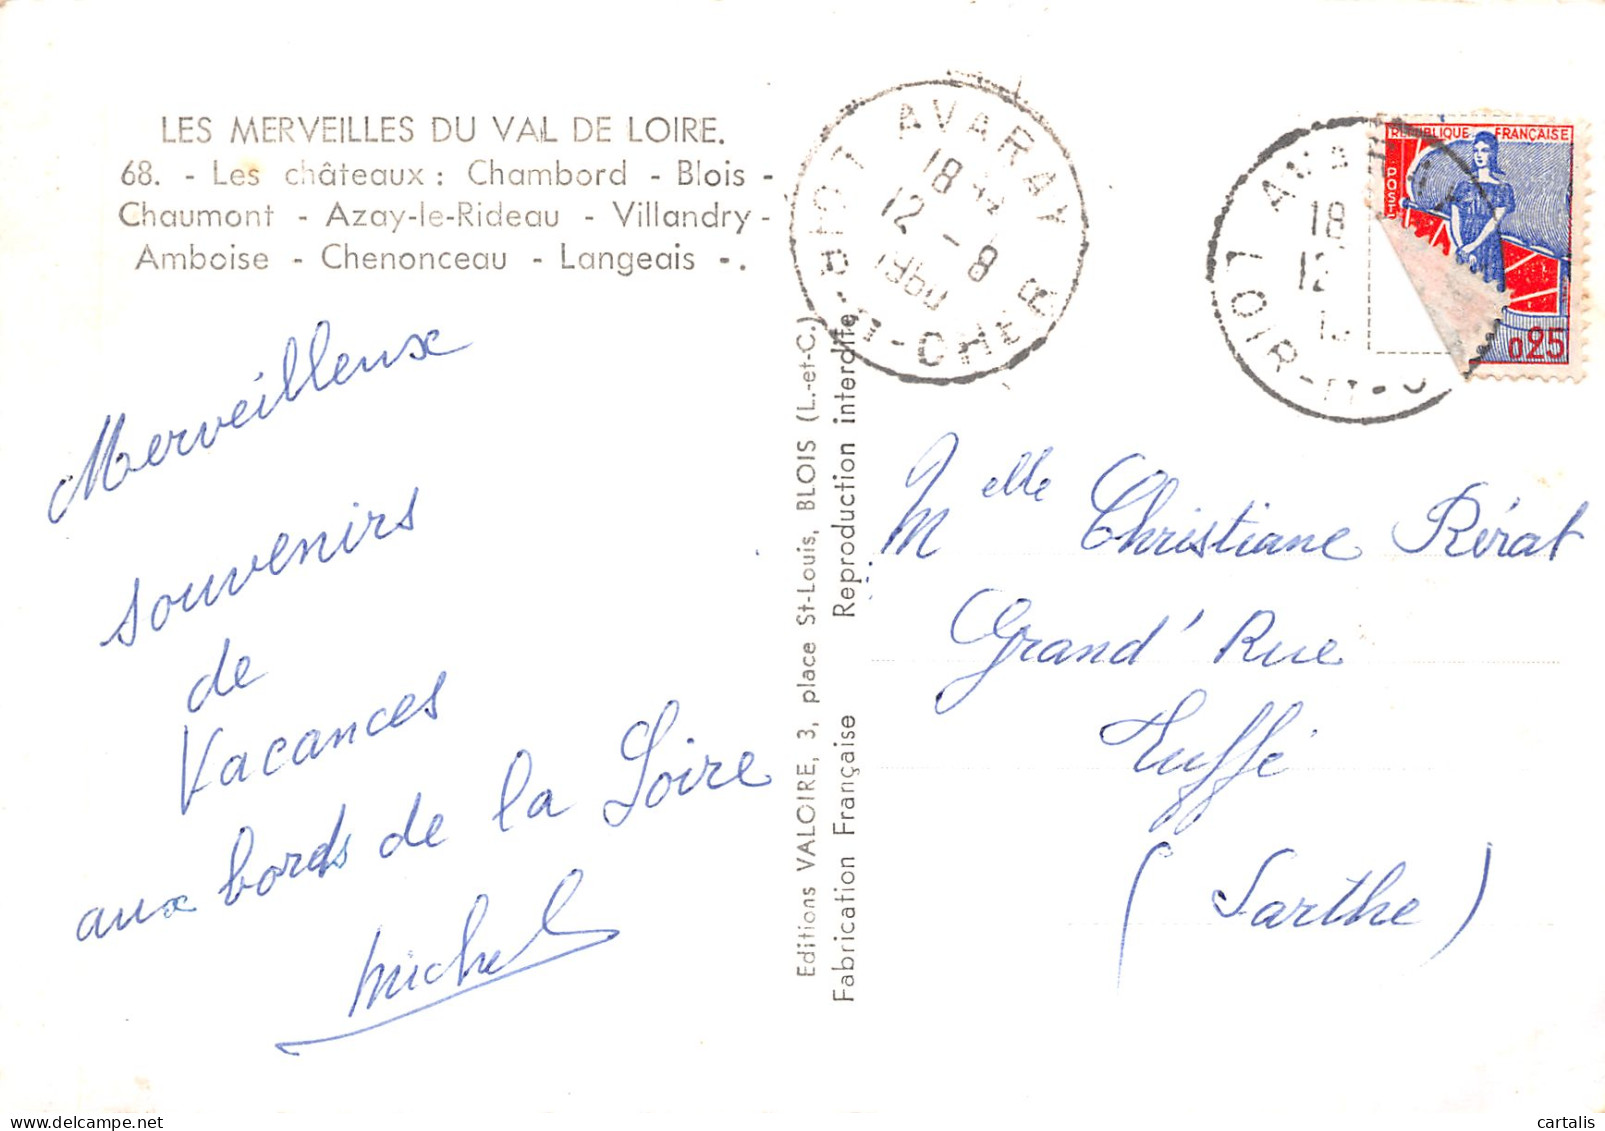 LES MERVEILLES DU VAL DE LOIRE.
68. - Les châteaux : Chambord - Blois -
Chaumont - Azay-le-Rideau - Villandry -
Amboise - Chenonceau - Langeais -.
Merveilleux
souvenirs
de
Vacances
aux bords de la Loire
Michel
Editions VALOIRE, 3, place St-Louis, BLOIS (L.-et-C.)
Fabrication Française Reproduction interdite
AVARAY
LOIR-ET-CHER
18
12 - 8
1960
AVARAY
LOIR-ET-C
18
12
REPUBLIQUE FRANÇAISE
POSTES
0,25
Melle Christiane Rérat
Grand' Rue
Tuffé
(Sarthe)
cartalis